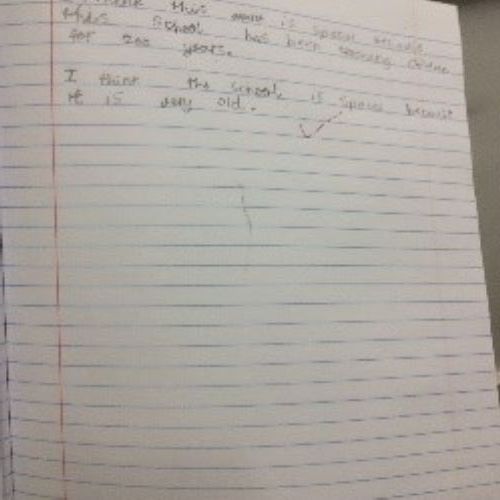 think this is special because
this school has been teaching
for 200 years.
I think the school is special because
it is very old.